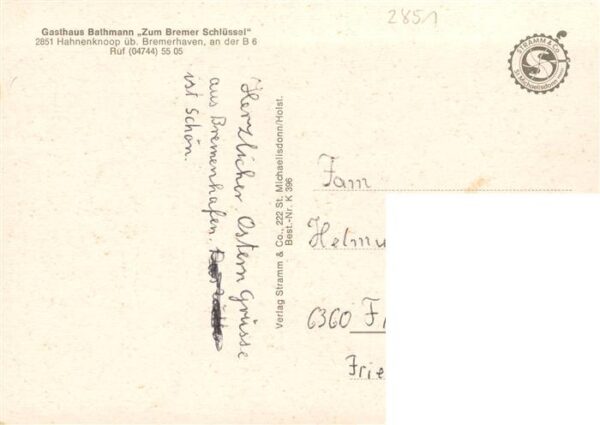 2851
Gasthaus Bathmann „Zum Bremer Schlüssel"
2851 Hahnenknoop üb. Bremerhaven, an der B 6
Ruf (04744) 55 05
STRAMM & CO.
St. Michaelisdonn
Herzlicher Ostern Grüsse
aus Bremenhafen.
ist schön.
Verlag Stramm & Co., 222 St. Michaelisdonn/Holst.
Best.-Nr. K 396
Fam
Helmu
6360 F
Frie